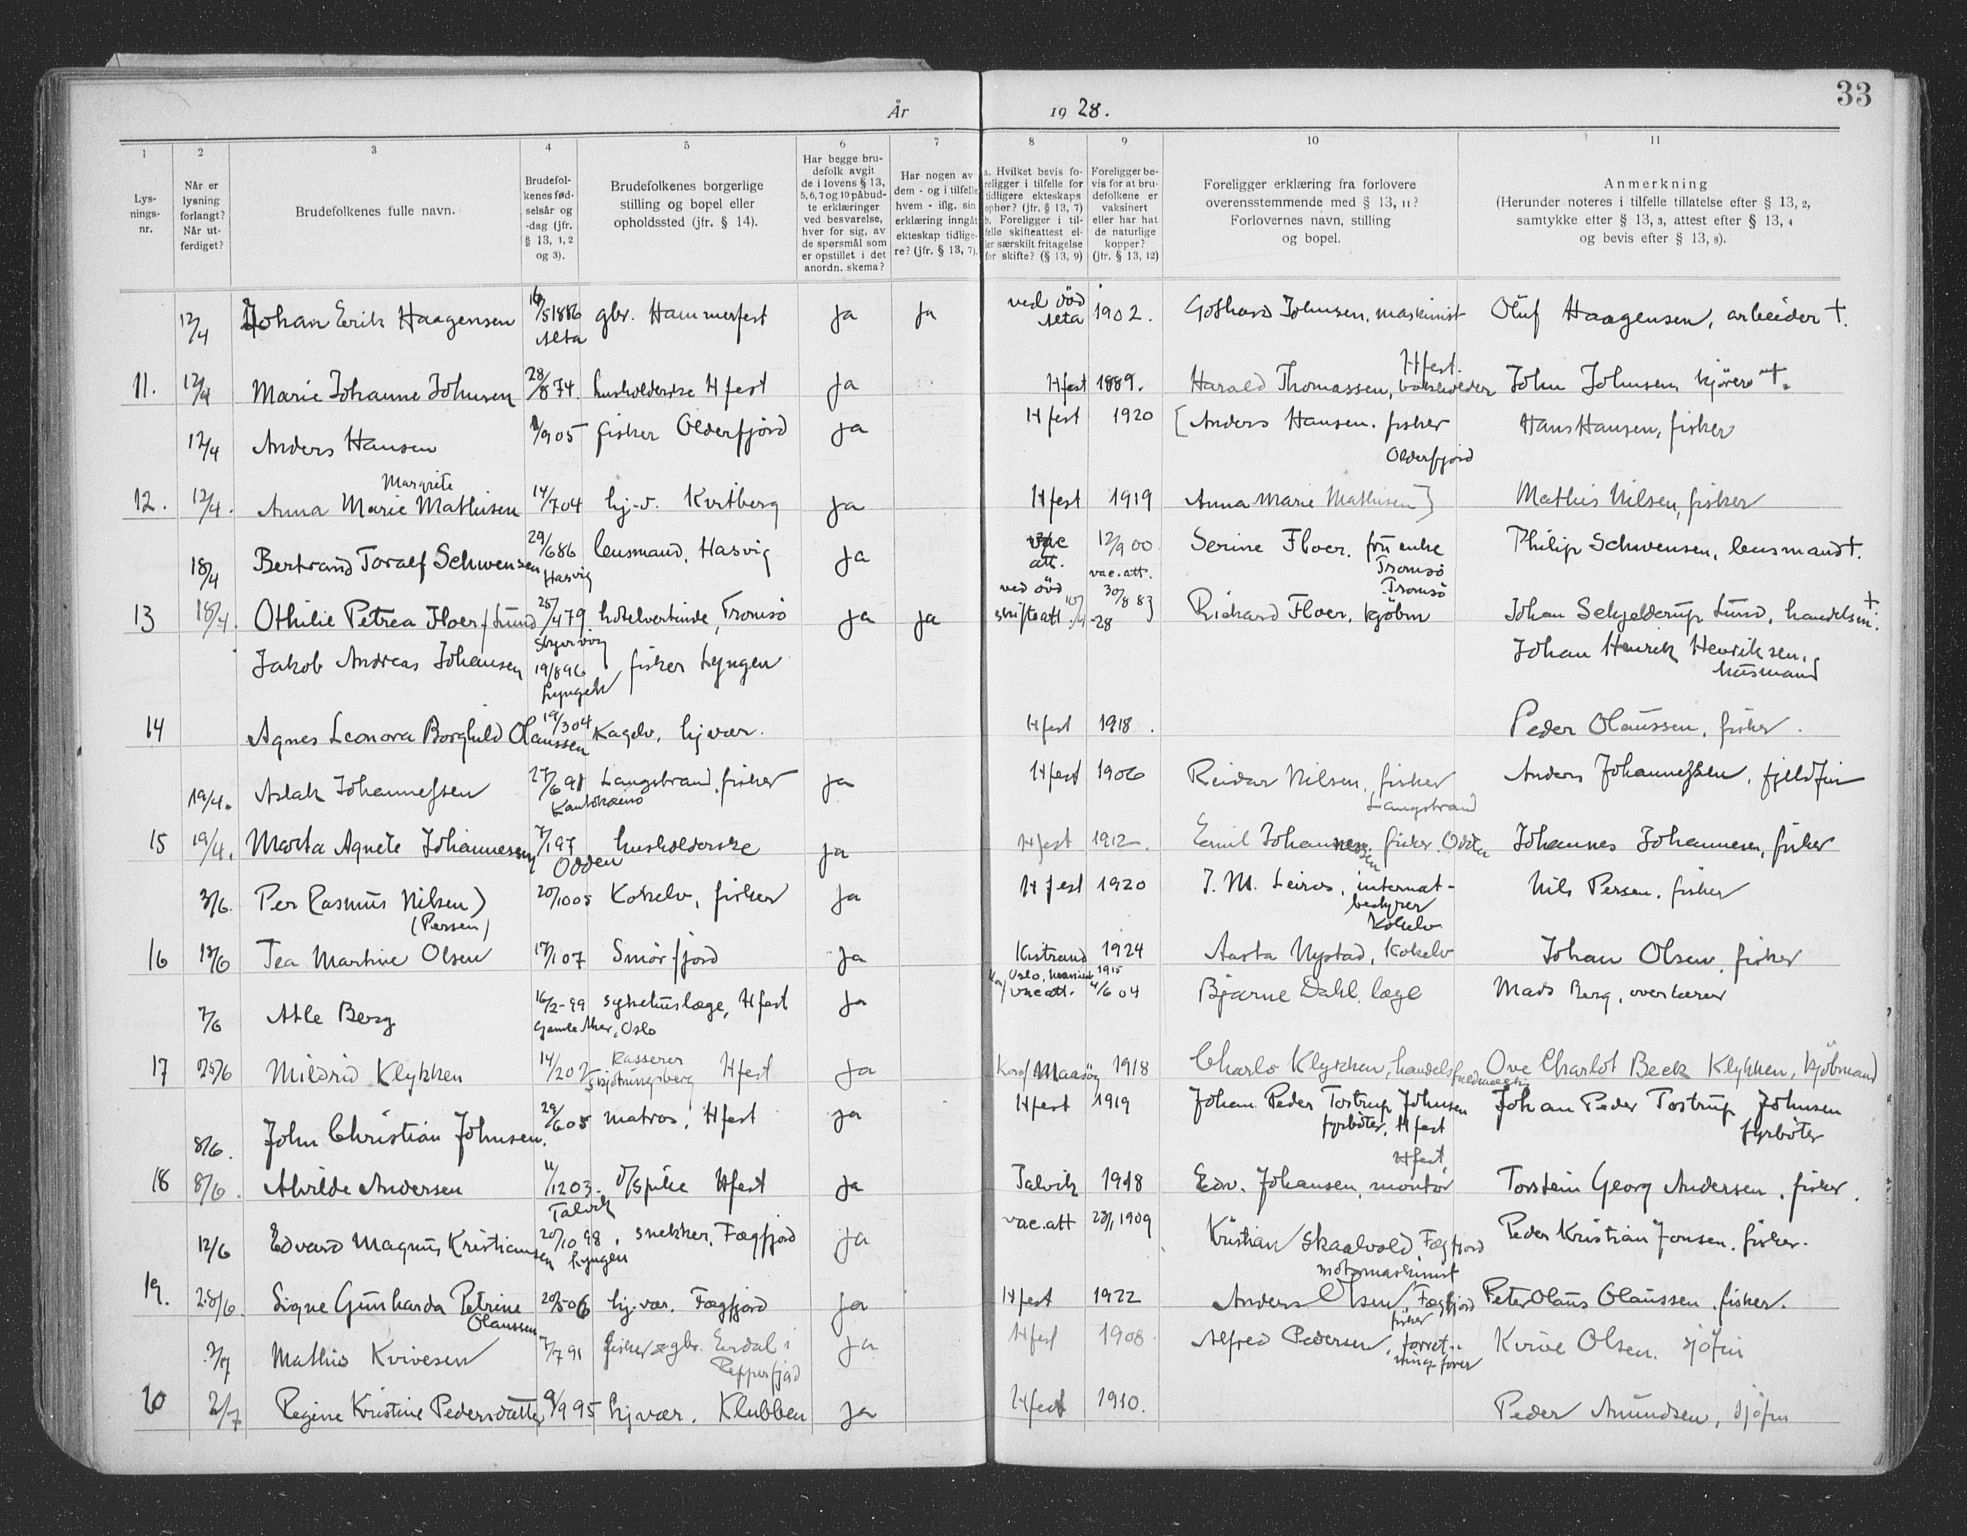 33
År 1928.
1 2 3 4 5 6 7 8 9 10 11
Lysnings-nr.
Når er lysning forlangt? Når utferdiget?
Brudefolkenes fulle navn.
Brudefolkenes fødselsår og -dag (jfr. § 13, 1, 2 og 3).
Brudefolkenes borgerlige stilling og bopel eller opholdssted (jfr. § 14).
Har begge brudefolk avgit de i lovens § 13, 5, 6, 7 og 10 påbudte erklæringer ved besvarelse, hver for sig, av de spørsmål som er opstillet i det anordn. skema?
Har nogen av dem - og i tilfelle hvem - iflg. sin erklæring inngåt ekteskap tidligere? (jfr. § 13, 7).
a. Hvilket bevis foreligger i tilfelle for tidligere ekteskaps ophør? (jfr. § 13, 7) b. Foreligger i tilfelle skifteattest eller særskilt fritagelse for skifte? (§ 13, 9)
Foreligger bevis for at brudefolkene er vaksinert eller har hat de naturlige kopper? (jfr. § 13, 12)
Foreligger erklæring fra forlovere overensstemmende med § 13, 11? Forlovernes navn, stilling og bopel.
Anmerkning (Herunder noteres i tilfelle tillatelse efter § 13, 2, samtykke efter § 13, 3, attest efter § 13, 4 og bevis efter § 13, 8).
12/4 Johan Erik Haagensen 16/5 1886 Alta gbr. Hammerfest Ja Ja ved død Alta 1902. Gothard Johnsen, maskinist Hfest. Oluf Haagensen, arbeider †.
11. 12/4 Marie Johanne Johnsen 28/8 74. husholderske Hfest Ja Hfest 1889. Harald Thomassen, John Johnsen, kjører †.
12/4 Anders Hansen /9 05 fisker Olderfjord Ja Hfest 1920 [Anders Hansen. fisker Olderfjord Hans Hansen, fisker
12. 12/4. Anna Marie Margrete Mathisen 14/7 04 hj.v. Kvitberg Ja Hfest 1919 Anna Marie Mathisen] Mathis Nilsen, fisker
18/4 Bertrand Toralf Schwensen 29/6 86 Hasvig lensmand, Hasvig Ja vac att. 12/9 00 vac. att. Serine Floer. fru enke Tromsö Philip Schwensen, lensmand †.
13 18/4. Othilie Petrea Floer f. Lund 25/4 79 hotelvertinde, Tromsö Ja Ja ved död skifteatt 30/8 83 Rickard Floer, kjöbm Tromsö Johan Schjelderup Lund, handelsm. †
Jakob Andreas Johansen 19/8 96 Lyngen fisker Lyngen Johan Henrik Henriksen, husmand
14 Agnes Leonora Borghild Olaussen 19/3 04 Kagelv, hj vær. Hfest 1918. Peder Olaussen, fisker.
19/4. Aslak Johannessen 27/6 91 Kautokeino Langstrand, fisker Ja Hfest 1906 Reidar Nilsen, fisker Langstrand Anders Johannessen, fjeldfin
15 19/4. Marta Agnete Johannessen 7/1 97 Odden husholderske Ja Hfest 1912. Emil Johannessen, fisker. Odden Johannes Johannesen, fisker
3/6. Per Rasmus Nilsen) (Persen) 20/10 05 Kokelv, fisker Ja Hfest 1920 J. M. Leiros, internat-bestyrer Kokelv Nils Persen. fisker
16 18/6 Tea Martine Olsen 17/1 07 Smörfjord Ja Kistrand 1924 Aasta Nystad, Kokelv Johan Olsen. fisker
7/6 Atle Berg 16/2-99 Gamle Aker, Oslo sykehuslæge, Hfest Ja vac att. 1915 4/6 04 Bjarne Dahl. læge Mads Berg, overlærer
17 25/6 Mildrid Klykken 14/2 02 Kasserer Hfest Ja Maasöy 1918 Charlo Klykken, handelsfuldmægtig Ove Charlot Beck Klykken, kjöbmand
8/6. John Christian Johnsen. 29/6 05 matros, Hfest Ja Hfest 1919 Johan Peder Tostrup Johnsen fyrböter, Hfest Johan Peder Tostrup Johnsen fyrböter
18 8/6. Alvilde Andersen 11/12 03. Talvik pike Hfest Ja Talvik 1918 Edv. Johansen, montör Hfest Torstein Georg Andersen, fisker.
12/6 Edvard Magnus Kristiansen 20/10 98. Lyngen snekker, Fægfjord Ja vac.att 23/1 1909 Kristian Skaalvold, Fægfjord motormaskinist Peder Kristian Jonsen, fisker.
19. 28/6. Signe Gunharda Petrine Olaussen 20/5 06 hj.vær. Fægfjord Ja Hfest 1922 Anders Olsen, Fægfjord fisker Peter Olaus Olaussen, fisker.
2/7 Mathis Kvivesen 7/7 91 fisker & gbr. i Repparfjord Ja Hfest 1908. Alfred Pedersen, forretningsförer Kvive Olsen. sjöfin
20 2/7 Regine Kristine Pedersdatter 9/9 95 hj vær. Klubben Ja Hfest 1910. Peder Amundsen, sjöfin